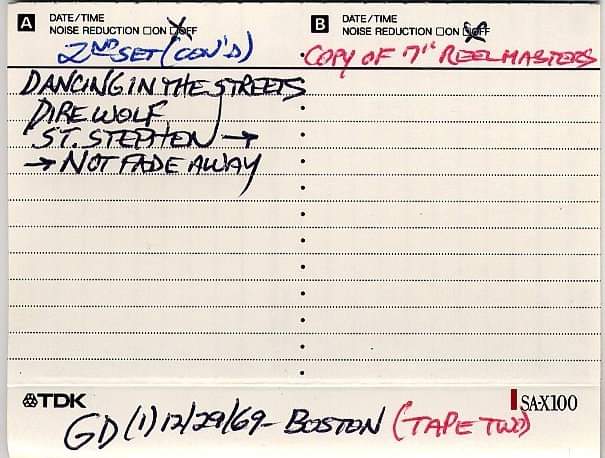 A DATE/TIME
NOISE REDUCTION □ON □OFF
2ND SET (CON'D)
B DATE/TIME
NOISE REDUCTION □ON □OFF
COPY OF 7" REEL MASTERS
DANCING IN THE STREETS
DIRE WOLF
ST. STEPHEN →
→ NOT FADE AWAY
TDK
SA-X100
GD (1) 12/29/69 - BOSTON (TAPE TWO)